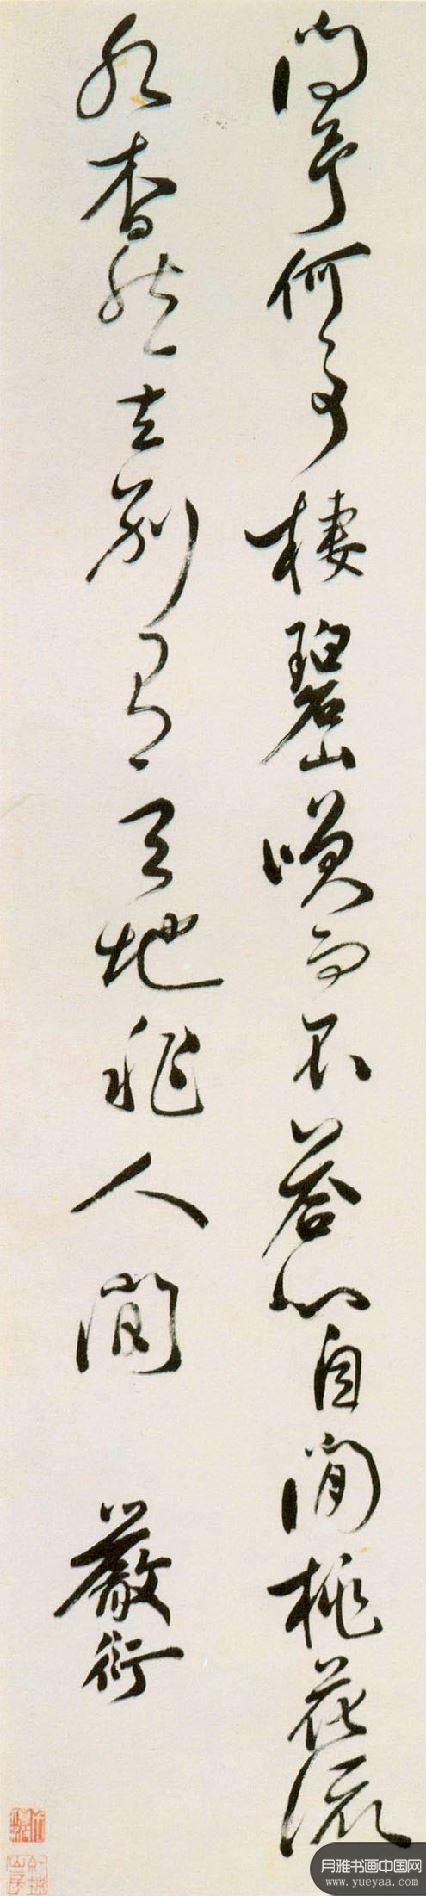 問予何事棲碧山咲而不荅心自閒桃花流
水杳然去別有天地非人間
嚴衍
月雅书画中国网
www.yueyaa.com